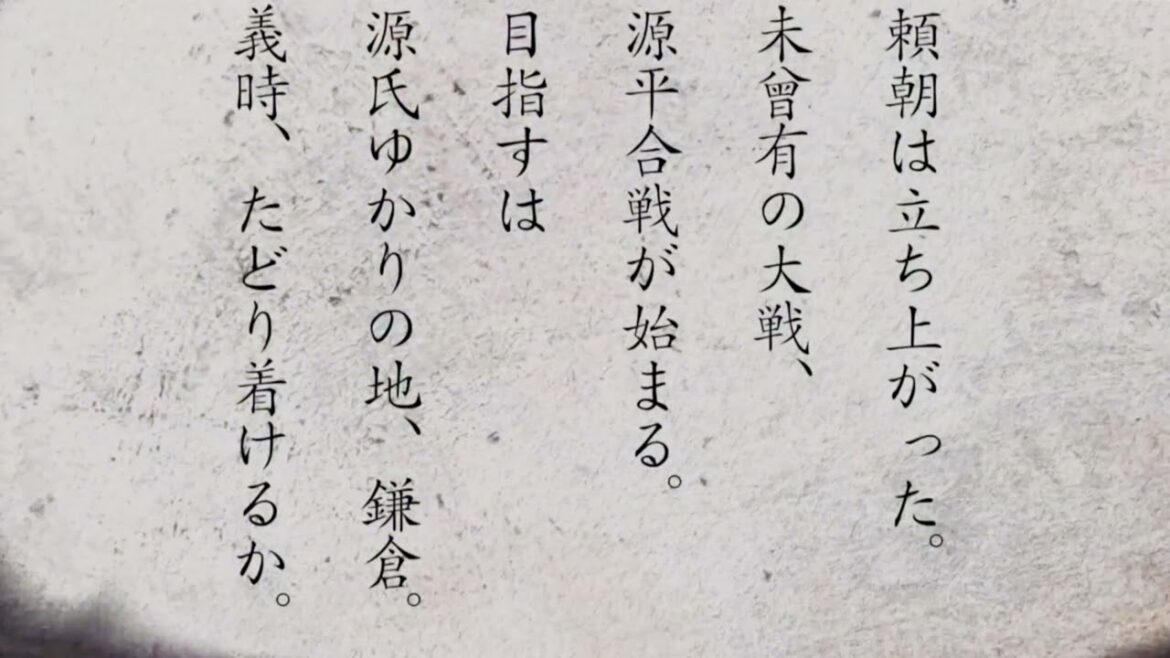 頼朝は立ち上がった。
未曾有の大戦、
源平合戦が始まる。
目指すは
源氏ゆかりの地、鎌倉。
義時、たどり着けるか。